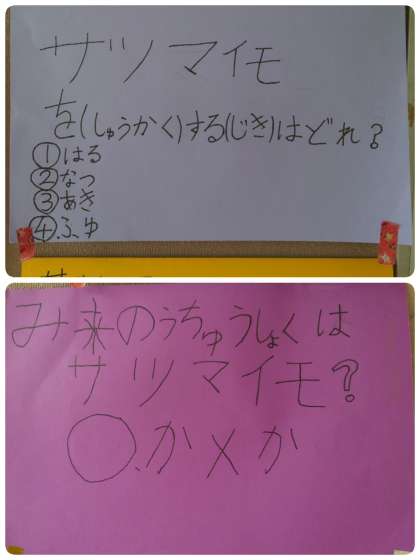 サツマイモ
を(しゅうかく)する(じき)はどれ?
①はる
②なつ
③あき
④ふゆ
み来のうちゅうしょくは
サツマイモ?
〇か×か